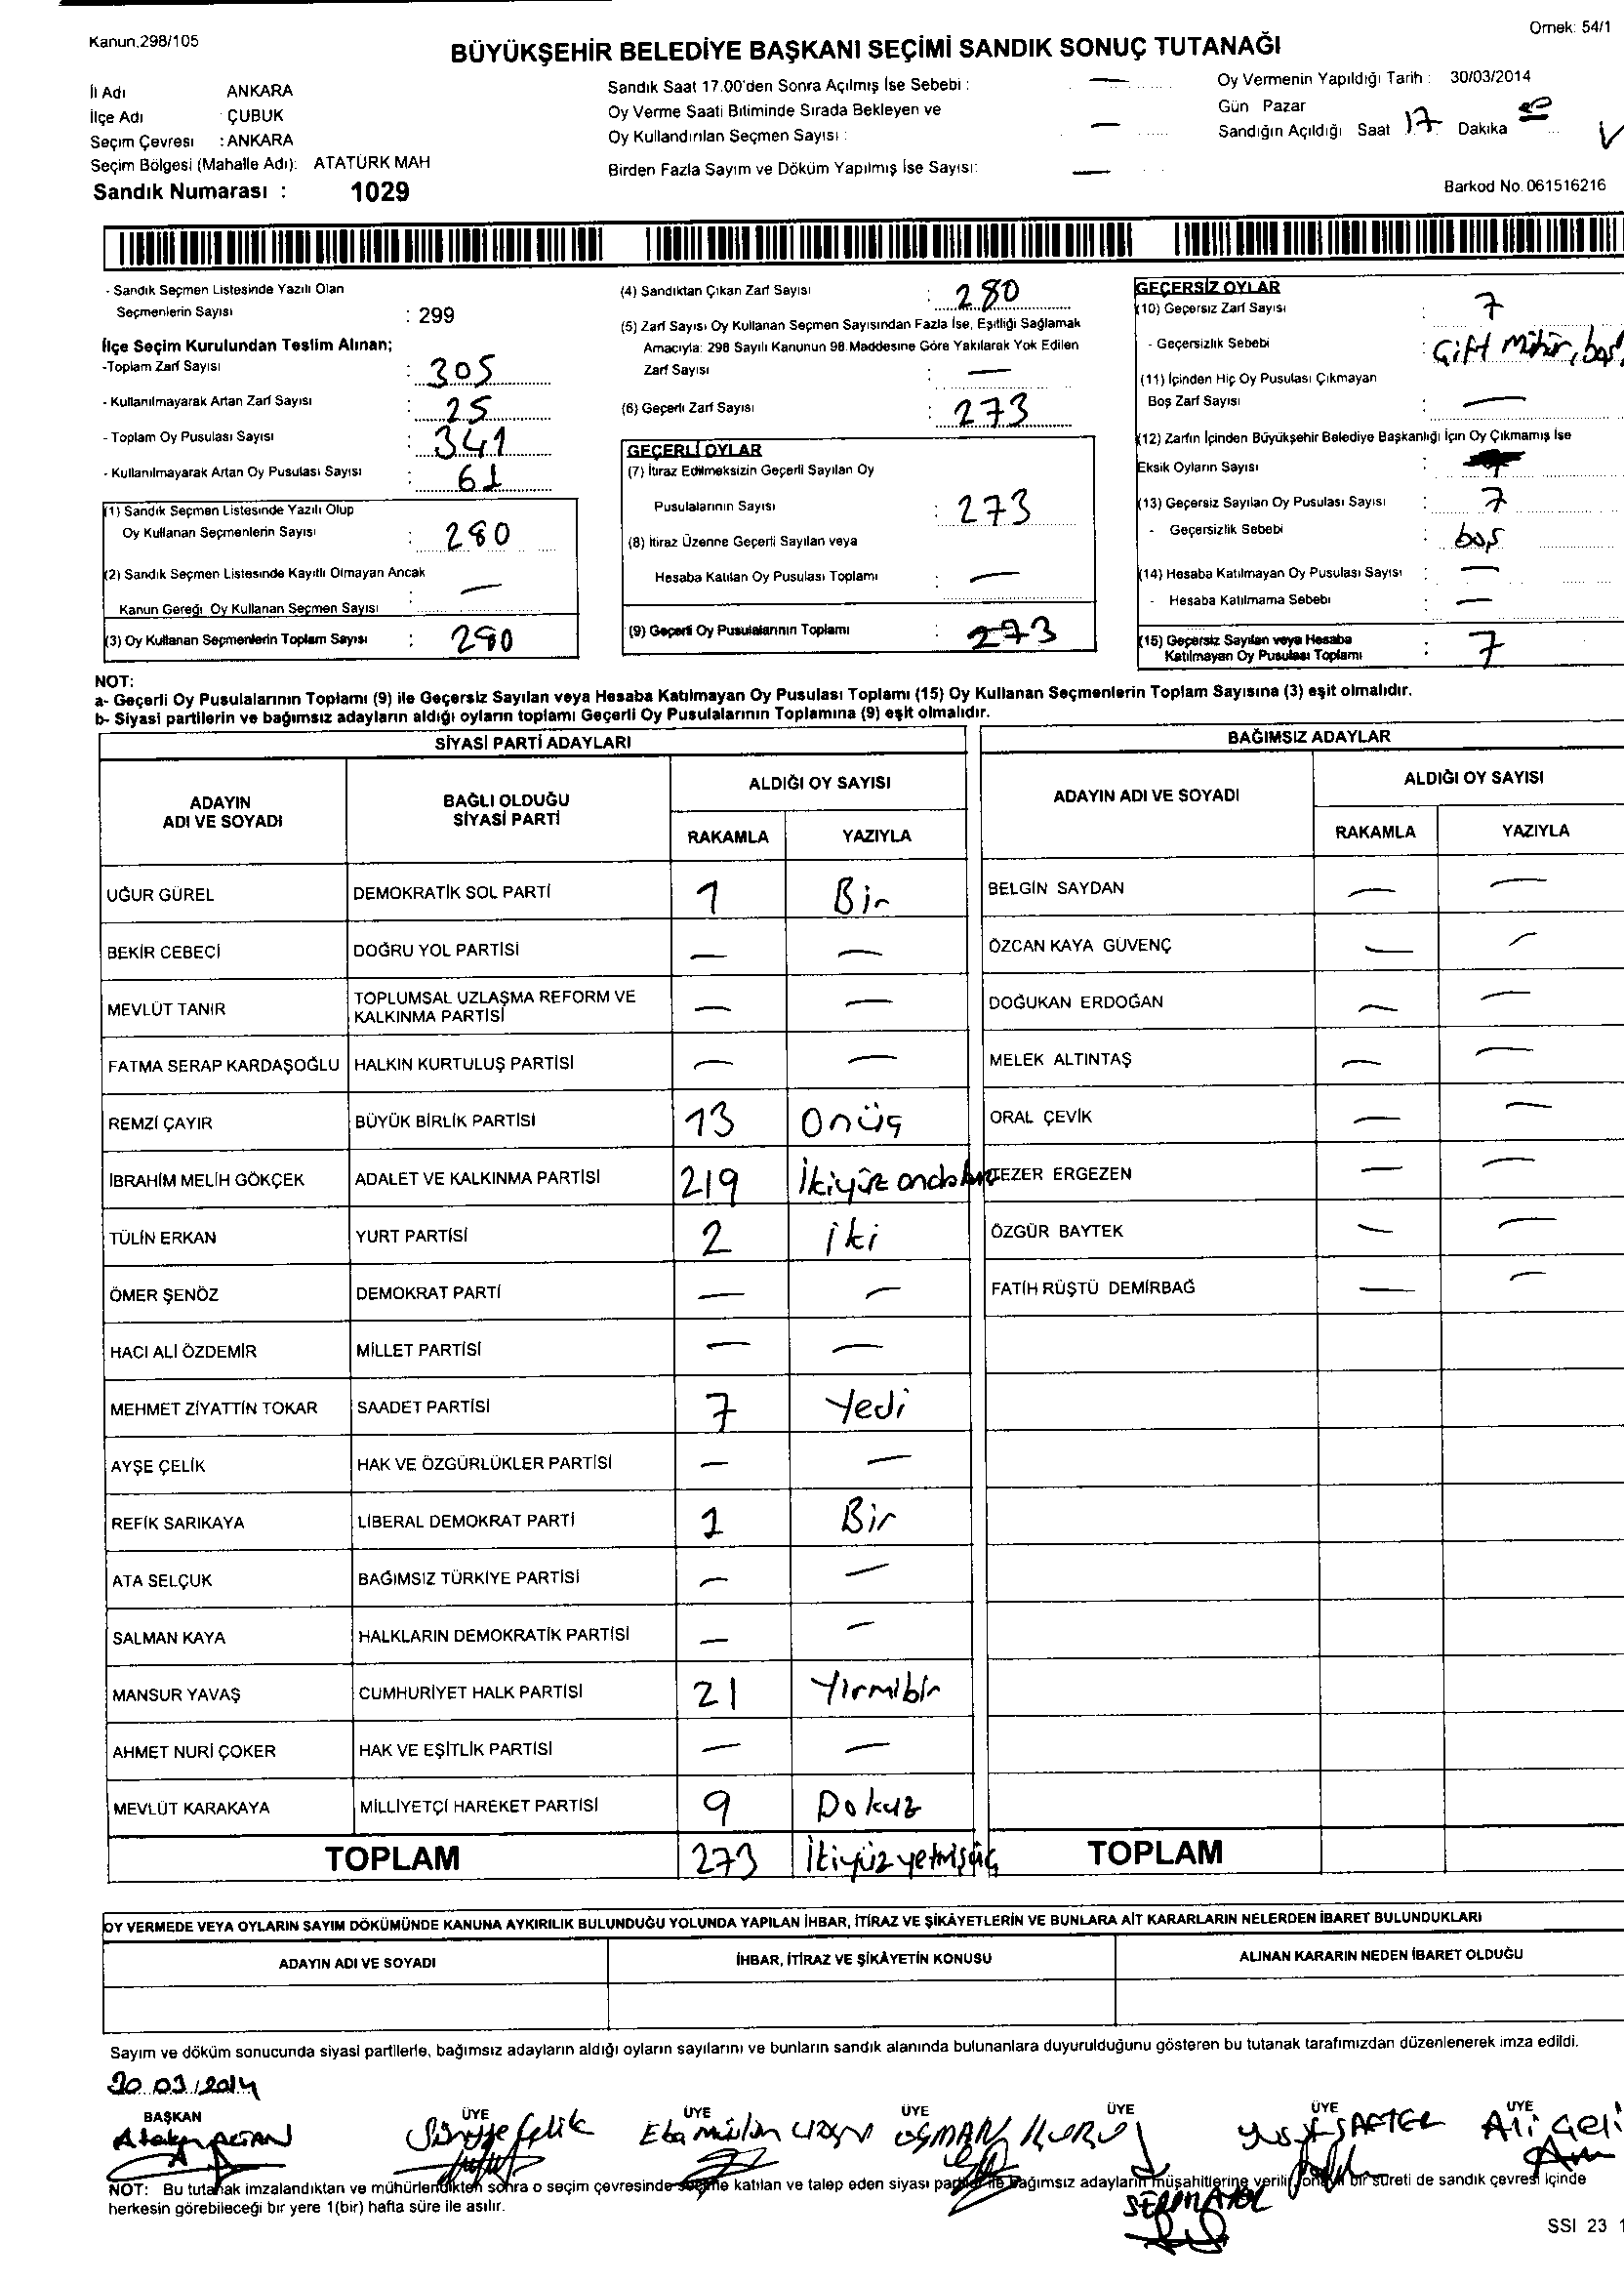 Kanun.298/105
Ornek: 54/1
BÜYÜKŞEHİR BELEDİYE BAŞKANI SEÇİMİ SANDIK SONUÇ TUTANAĞI
İl Adı ANKARA
İlçe Adı : ÇUBUK
Seçim Çevresi : ANKARA
Seçim Bölgesi (Mahalle Adı): ATATÜRK MAH
Sandık Numarası : 1029
Sandık Saat 17.00'den Sonra Açılmış İse Sebebi : —
Oy Verme Saati Bitiminde Sırada Bekleyen ve
Oy Kullandırılan Seçmen Sayısı : —
Birden Fazla Sayım ve Döküm Yapılmış İse Sayısı: —
Oy Vermenin Yapıldığı Tarih : 30/03/2014
Gün Pazar
Sandığın Açıldığı Saat 17 Dakika
Barkod No. 061516216
- Sandık Seçmen Listesinde Yazılı Olan
Seçmenlerin Sayısı : 299
İlçe Seçim Kurulundan Teslim Alınan;
-Toplam Zarf Sayısı : 305
- Kullanılmayarak Artan Zarf Sayısı : 25
- Toplam Oy Pusulası Sayısı : 341
- Kullanılmayarak Artan Oy Pusulası Sayısı : 61
(1) Sandık Seçmen Listesinde Yazılı Olup
Oy Kullanan Seçmenlerin Sayısı : 280
(2) Sandık Seçmen Listesinde Kayıtlı Olmayan Ancak
Kanun Gereği Oy Kullanan Seçmen Sayısı : —
(3) Oy Kullanan Seçmenlerin Toplam Sayısı : 280
(4) Sandıktan Çıkan Zarf Sayısı : 280
(5) Zarf Sayısı Oy Kullanan Seçmen Sayısından Fazla İse, Eşitliği Sağlamak
Amacıyla: 298 Sayılı Kanunun 98.Maddesine Göre Yakılarak Yok Edilen
Zarf Sayısı : —
(6) Geçerli Zarf Sayısı : 273
GEÇERLİ OYLAR
(7) İtiraz Edilmeksizin Geçerli Sayılan Oy
Pusulalarının Sayısı : 273
(8) İtiraz Üzerine Geçerli Sayılan veya
Hesaba Katılan Oy Pusulası Toplamı : —
(9) Geçerli Oy Pusulalarının Toplamı : 273
GEÇERSİZ OYLAR
(10) Geçersiz Zarf Sayısı : 7
- Geçersizlik Sebebi : Çift mühür, boş
(11) İçinden Hiç Oy Pusulası Çıkmayan
Boş Zarf Sayısı : —
(12) Zarfın İçinden Büyükşehir Belediye Başkanlığı İçin Oy Çıkmamış İse
Eksik Oyların Sayısı :
(13) Geçersiz Sayılan Oy Pusulası Sayısı : 7
- Geçersizlik Sebebi : boş
(14) Hesaba Katılmayan Oy Pusulası Sayısı : —
- Hesaba Katılmama Sebebi : —
(15) Geçersiz Sayılan veya Hesaba
Katılmayan Oy Pusulası Toplamı : 7
NOT:
a- Geçerli Oy Pusulalarının Toplamı (9) ile Geçersiz Sayılan veya Hesaba Katılmayan Oy Pusulası Toplamı (15) Oy Kullanan Seçmenlerin Toplam Sayısına (3) eşit olmalıdır.
b- Siyasi partilerin ve bağımsız adayların aldığı oyların toplamı Geçerli Oy Pusulalarının Toplamına (9) eşit olmalıdır.
SİYASİ PARTİ ADAYLARI
ADAYIN ADI VE SOYADI BAĞLI OLDUĞU SİYASİ PARTİ ALDIĞI OY SAYISI
RAKAMLA YAZIYLA
UĞUR GÜREL DEMOKRATİK SOL PARTİ 1 Bir
BEKİR CEBECİ DOĞRU YOL PARTİSİ — —
MEVLÜT TANIR TOPLUMSAL UZLAŞMA REFORM VE KALKINMA PARTİSİ — —
FATMA SERAP KARDAŞOĞLU HALKIN KURTULUŞ PARTİSİ — —
REMZİ ÇAYIR BÜYÜK BİRLİK PARTİSİ 13 Onüç
İBRAHİM MELİH GÖKÇEK ADALET VE KALKINMA PARTİSİ 219 İkiyüz ondokuz
TÜLİN ERKAN YURT PARTİSİ 2 iki
ÖMER ŞENÖZ DEMOKRAT PARTİ — —
HACI ALİ ÖZDEMİR MİLLET PARTİSİ — —
MEHMET ZİYATTİN TOKAR SAADET PARTİSİ 7 Yedi
AYŞE ÇELİK HAK VE ÖZGÜRLÜKLER PARTİSİ — —
REFİK SARIKAYA LİBERAL DEMOKRAT PARTİ 1 Bir
ATA SELÇUK BAĞIMSIZ TÜRKİYE PARTİSİ — —
SALMAN KAYA HALKLARIN DEMOKRATİK PARTİSİ — —
MANSUR YAVAŞ CUMHURİYET HALK PARTİSİ 21 Yirmibir
AHMET NURİ ÇOKER HAK VE EŞİTLİK PARTİSİ — —
MEVLÜT KARAKAYA MİLLİYETÇİ HAREKET PARTİSİ 9 Dokuz
TOPLAM 273 İkiyüzyetmişüç
BAĞIMSIZ ADAYLAR
ADAYIN ADI VE SOYADI ALDIĞI OY SAYISI
RAKAMLA YAZIYLA
BELGİN SAYDAN — —
ÖZCAN KAYA GÜVENÇ — —
DOĞUKAN ERDOĞAN — —
MELEK ALTINTAŞ — —
ORAL ÇEVİK — —
TEZER ERGEZEN — —
ÖZGÜR BAYTEK — —
FATİH RÜŞTÜ DEMİRBAĞ — —
TOPLAM
OY VERMEDE VEYA OYLARIN SAYIM DÖKÜMÜNDE KANUNA AYKIRILIK BULUNDUĞU YOLUNDA YAPILAN İHBAR, İTİRAZ VE ŞİKÂYETLERİN VE BUNLARA AİT KARARLARIN NELERDEN İBARET BULUNDUKLARI
ADAYIN ADI VE SOYADI İHBAR, İTİRAZ VE ŞİKÂYETİN KONUSU ALINAN KARARIN NEDEN İBARET OLDUĞU
Sayım ve döküm sonucunda siyasi partilerle, bağımsız adayların aldığı oyların sayılarını ve bunların sandık alanında bulunanlara duyurulduğunu gösteren bu tutanak tarafımızdan düzenlenerek imza edildi.
30.03.2014
BAŞKAN ÜYE ÜYE ÜYE ÜYE ÜYE ÜYE
OSMAN KURU
NOT: Bu tutanak imzalandıktan ve mühürlendikten sonra o seçim çevresinde seçime katılan ve talep eden siyasi partiler ile bağımsız adayların müşahitlerine verilir, onaylı bir sureti de sandık çevresi içinde
herkesin görebileceği bir yere 1(bir) hafta süre ile asılır.
SSI 23 1